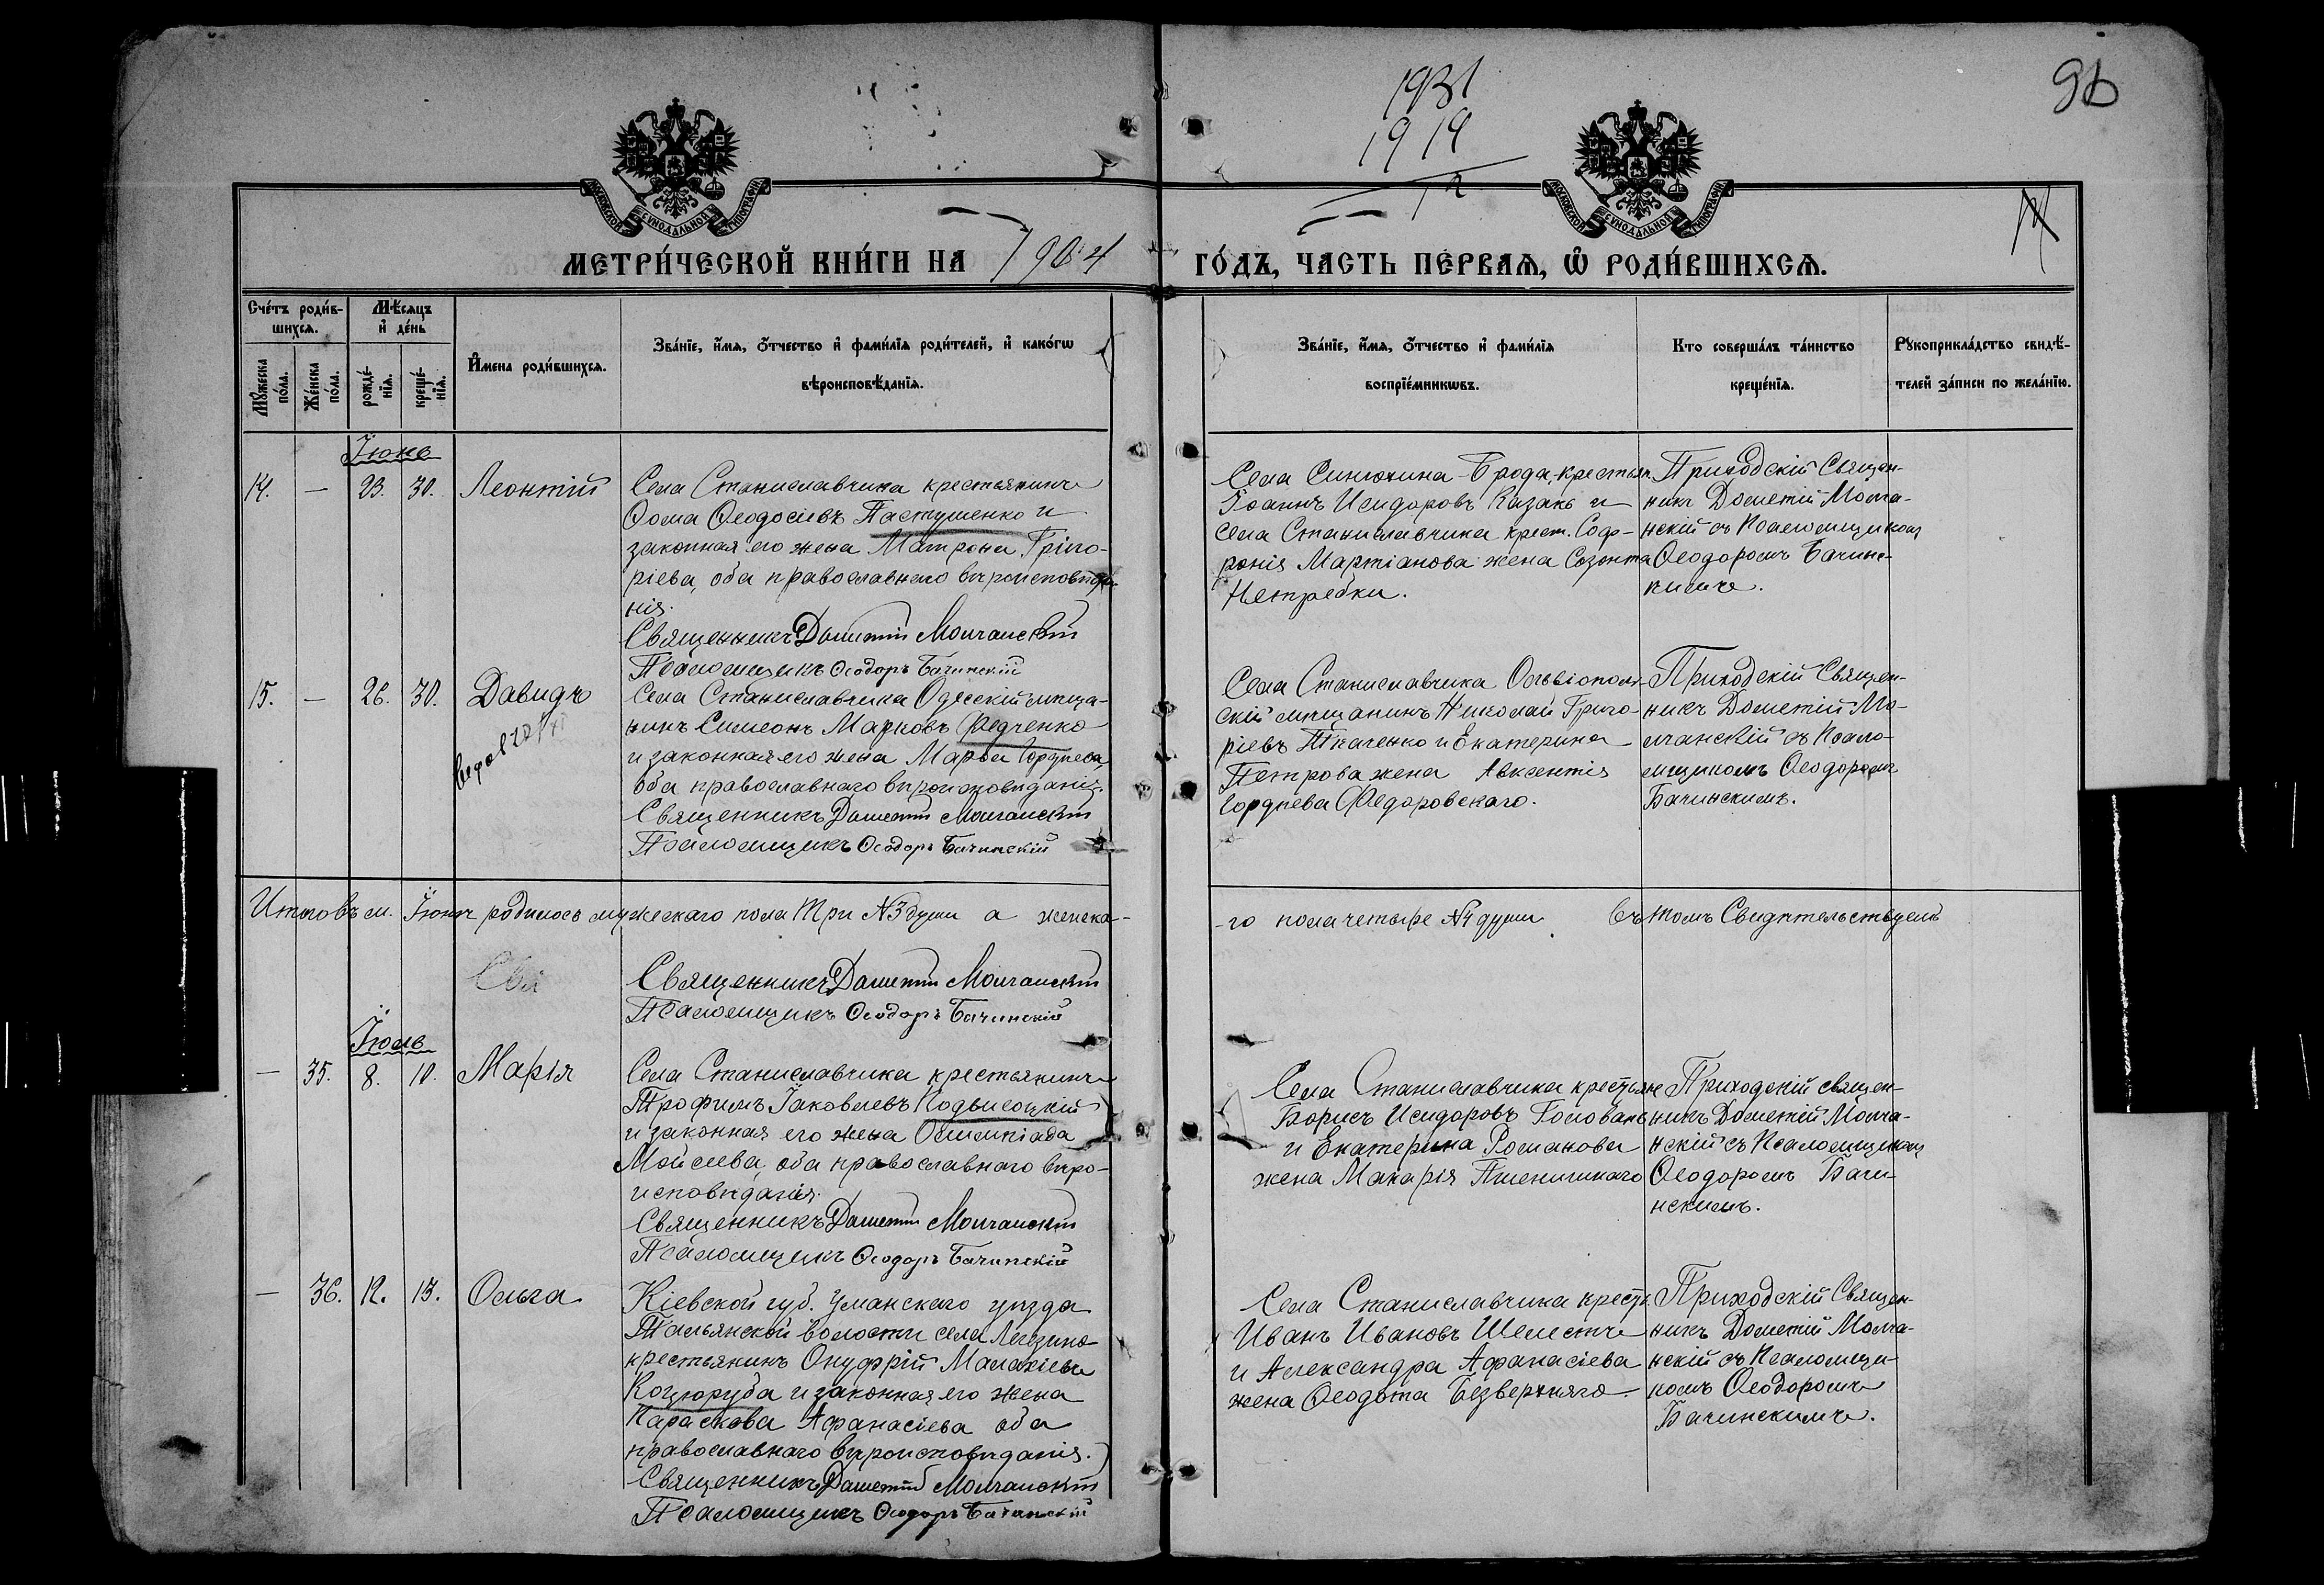 1931
1919
12
96
14
МОСКОВСКОЙ СѴНОДАЛЬНОЙ ТИПОГРАФІИ
МОСКОВСКОЙ СѴНОДАЛЬНОЙ ТИПОГРАФІИ
МЕТРИ́ЧЕСКОЙ КНИ́ГИ НА 1904 ГО́ДЪ, ЧАСТЬ ПЕРВАѦ, Ѽ РОДИ́ВШИХСѦ.
Сче́тъ роди́в-
шихсѧ.
Мѣсѧцъ
и҆ де́нь
Мꙋжеска
по́ла.
Же́нска
по́ла.
рожде́-
нїѧ.
креще́-
нїѧ.
И҆мена роди́вшихсѧ.
Зва́нїе, и҆́мѧ, ѻ҆́тчество и҆ фами́лїѧ роди́телей, и҆ како́гѡ
вѣроисповѣ́данїѧ.
Зва́нїе, и҆́мѧ, ѻ҆́тчество и҆ фами́лїѧ
воспрїе́мникѡвъ.
Кто соверша́лъ та́инство
креще́нїѧ.
Рꙋкоприкла́дство свидѣ́-
телей за́писи по жела́нїю.
Іюнь
14. — 23. 30. Леонтій
Села Станиславчика крестьянинъ
Ѳома Ѳеодосіевъ Пастушенко и
законная его жена Матрона Григо-
ріева, оба православнаго вѣроисповѣда-
нія.
Священникъ Дометій Молчанскій
Псаломщикъ Ѳеодоръ Бачинскій
Села Синюхина-Брода, крестьян.
Іоаннъ Исидоровъ Казанъ и
села Станиславчика крест. Соф-
ронія Мартіанова жена Созонта
Нетребки.
Приходскій Священ-
никъ Дометій Молча-
нскій съ Псаломщиком
Ѳеодоромъ Бачинс-
кимъ.
15. — 26. 30. Давидъ
Села Станиславчика Одесскій мѣща-
нинъ Симеонъ Марковъ Федченко
и законная его жена Марѳа Гордѣева,
оба православнаго вѣроисповѣданія.
Священникъ Дометій Молчанскій
Псаломщикъ Ѳеодоръ Бачинскій
Села Станиславчика Ольвіополь-
скій мѣщанинъ Николай Григо-
ріевъ Ткаченко и Екатерина
Петрова жена Авксентія
Гордѣева Федоровскаго.
Приходскій Священ-
никъ Дометій Мо-
лчанскій съ Псало-
мщикомъ Ѳеодоромъ
Бачинскимъ.
Итого въ м. Іюнѣ родилось мужескаго пола три №3 души а женска-
-го пола четыре №4 души. Въ томъ Свидѣтельствуемъ
Свя
Священникъ Дометій Молчанскій
Псаломщикъ Ѳеодоръ Бачинскій
Іюль
— 35. 8. 10. Марія
Села Станиславчика крестьянинъ
Трофимъ Іаковлевъ Подвысоцкій
и законная его жена Олимпіада
Мойсеева, оба православнаго вѣро-
исповѣданія.
Священникъ Дометій Молчанскій
Псаломщикъ Ѳеодоръ Бачинскій
Села Станиславчика крестьяне
Борисъ Исидоровъ Головань
и Екатерина Романова
жена Макарія Пшеничнаго
Приходскій священ-
никъ Дометій Молча-
нскій съ Псаломщиком
Ѳеодоромъ Бачи-
нскимъ.
— 36. 12. 13. Ольга
Кіевской губ. Уманскаго уѣзда
Тальянской волости села Легезино
крестьянинъ Онуфрій Малахіевъ
Коцюруба и законная его жена
Параскева Афанасіева оба
православнаго вѣроисповѣданія.
Священникъ Дометій Молчанскій
Псаломщикъ Ѳеодоръ Бачинскій
Села Станиславчика крестьян.
Иванъ Ивановъ Шелестъ
и Александра Афанасіева
жена Ѳеодота Безверхняго.
Приходскій Священ-
никъ Дометій Молча-
нскій съ Псаломщи-
комъ Ѳеодоромъ
Бачинскимъ.